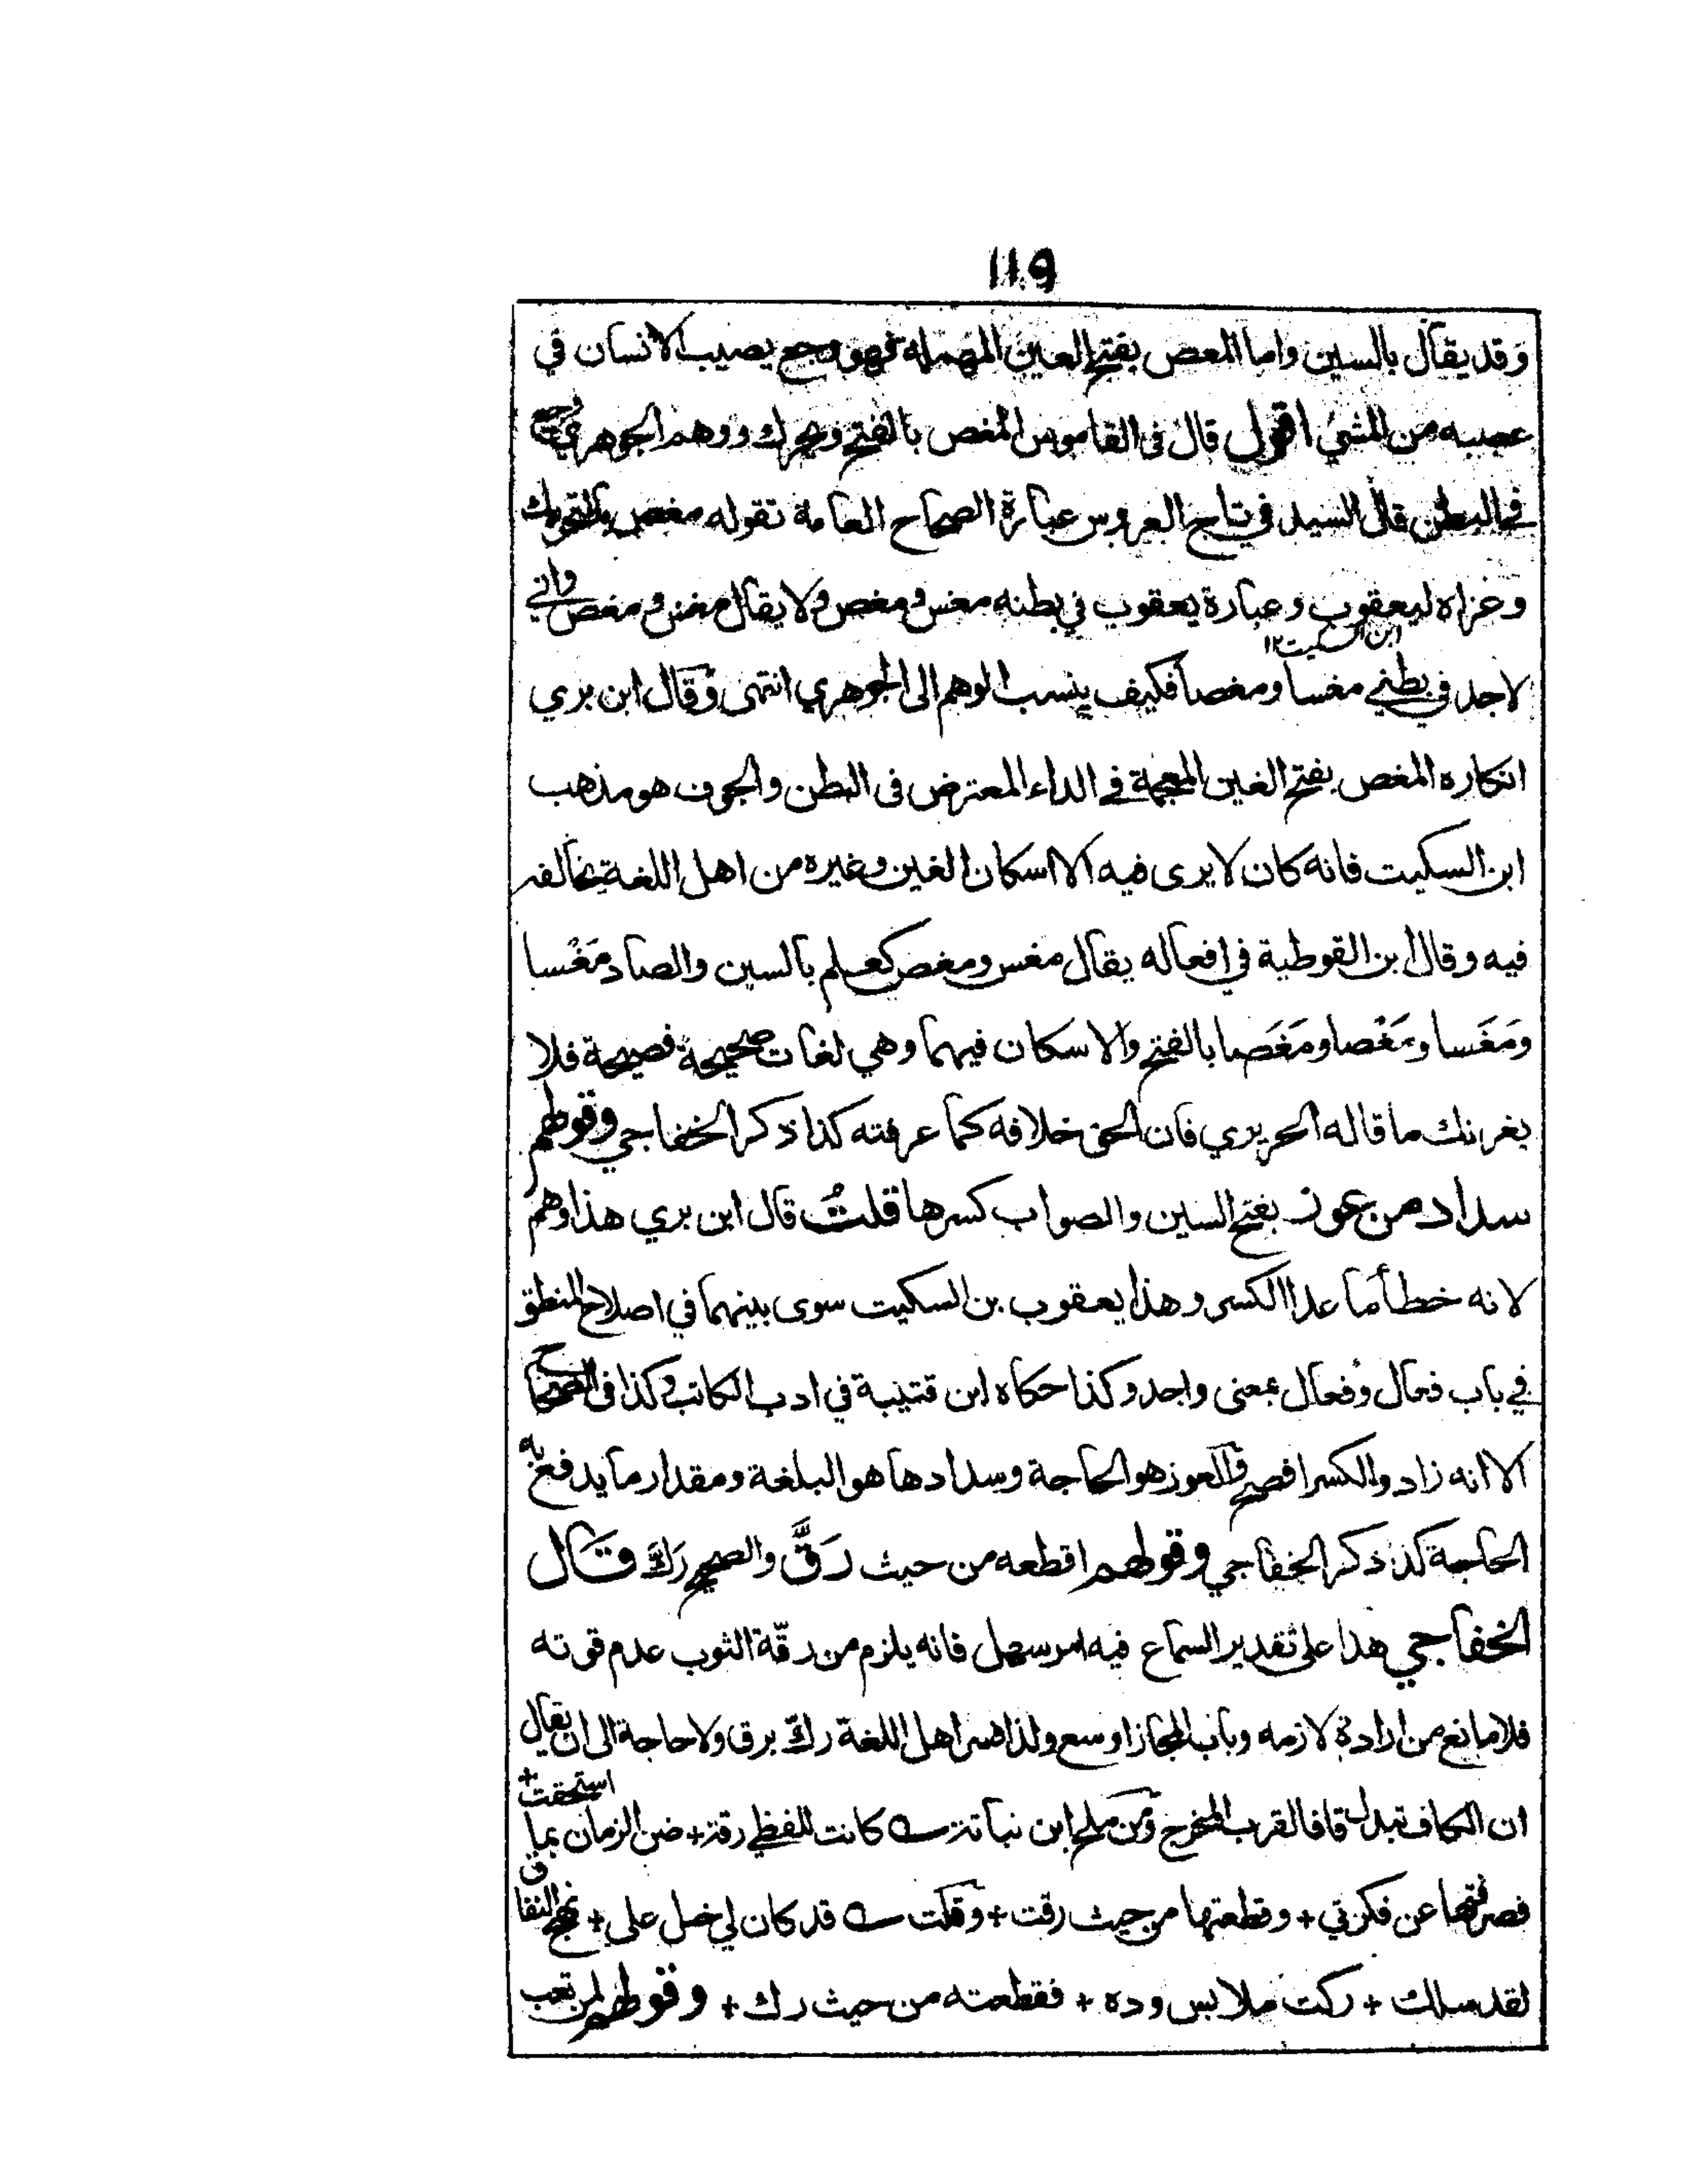 119
وقد يقال بالسين واما المعص بفتح العين المهملة فهو وجع يصيب الانسان في
عصبه من المشي اقول قال فى القاموس المغص بالفتح ويحرك ووهم الجوهري وجع
في البطن قال السيد في تاج العروس عبارة الصحاح العامة تقوله مغص بالتحريك
وعزاه ليعقوب وعبارة يعقوب في بطنه مغس ومغص ولا يقال مغس ومغص واني
ابن السكيت ١٢
لاجد في بطني مغسا ومغصا فكيف ينسب الوهم الى الجوهري انتهى وقال ابن بري
انكاره المغص بفتح الغين المعجمة في الداء المعترض فى البطن والجوف هو مذهب
ابن السكيت فانه كان لا يرى فيه الا اسكان الغين وغيره من اهل اللغة يخالفه
فيه وقال ابن القوطية في افعاله يقال مغس ومغص كعلم بالسين والصاد مَغْسا
ومَغَسا ومَغْصا ومَغَصا بالفتح والاسكان فيهما وهي لغات صحيحة فصيحة فلا
يغرنك ما قاله الحريري فان الحق خلافه كما عرفته كذا ذكر الخفاجي وقولهم
سداد من عوز بفتح السين والصواب كسرها قلتُ قال ابن بري هذا وهم
لانه خطأ ما عدا الكسر وهذا يعقوب بن السكيت سوى بينهما في اصلاح المنطق
في باب فعال وفعال بمعنى واحد وكذا حكاه ابن قتيبة في ادب الكاتب وكذا فى الصحاح
الا انه زاد والكسر افصح والعوز هو الحاجة وسدادها هو البلغة ومقدار ما يدفع به
الحاجة كذ ذكر الخفاجي وقولهم اقطعه من حيث رَقَّ والصحيح رَكَّ قال
الخفاجي هذا على تقدير السماع فيه امر سهل فانه يلزم من رقّة الثوب عدم قوته
فلا مانع من ارادة لازمه وباب المجاز اوسع ولذا فسر اهل اللغة ركّ برق ولا حاجة الى ان يقال
ان الكاف تبدل قافا لقرب المخرج ومن ملح ابن نباتة ؎ كانت للفظي رقة + ضن الزمان بما استحقت +
فصرفتها عن فكرتي + وقطعتها من حيث رقت + وقلت ؎ قد كان لي خل على + نهج النفاق
لقد سلك + ركت ملابس وده + فقطعته من حيث رك + وقولهم لمن تعب